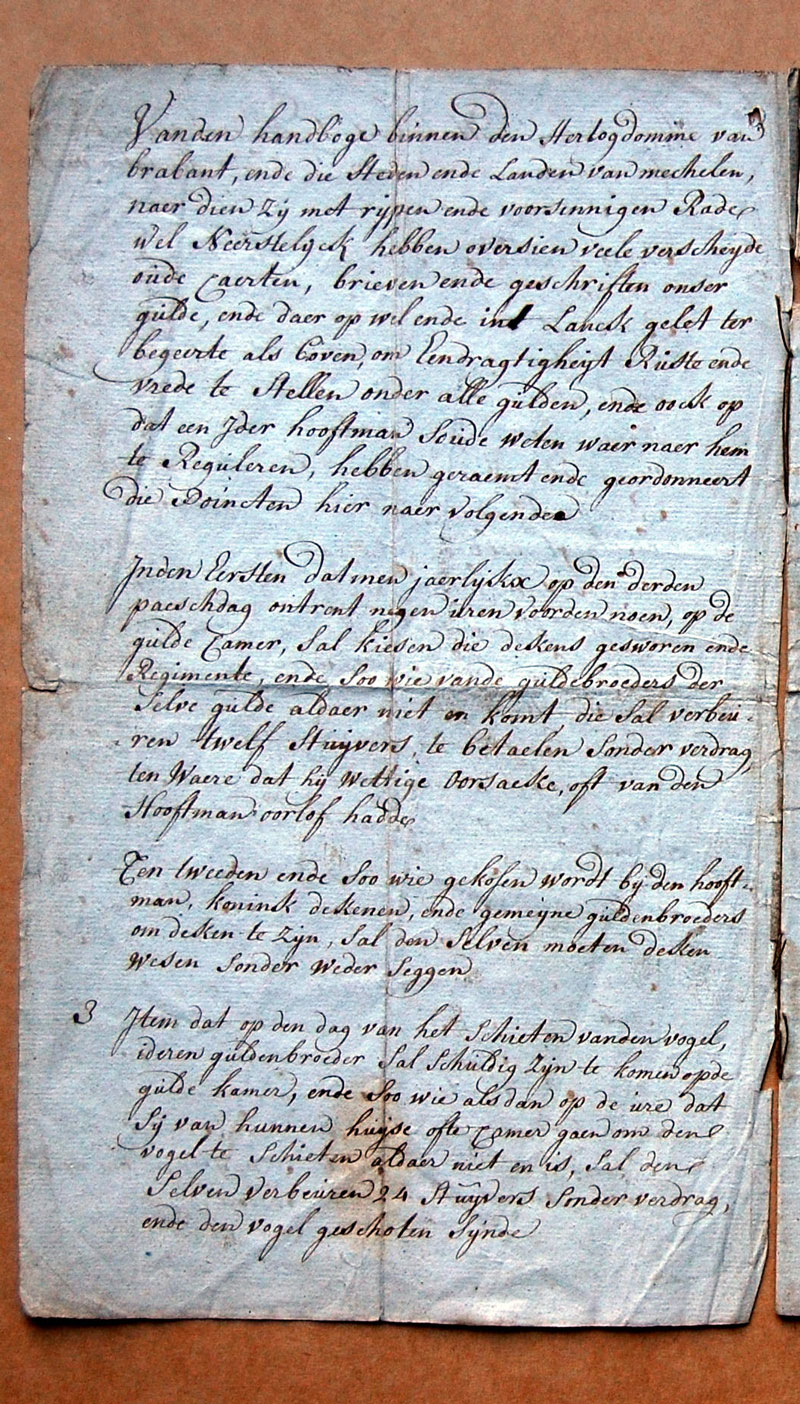 Vanden handböge binnen den Hertogdomme van
brabant, ende die Steden ende Landen van mechelen,
naer dien Zÿ met rÿpen ende voorsinnigen Rade
wel Neerstelyck hebben oversien veele verscheÿde
oude Caerten, brieven ende geschriften onser
gulde, ende daer op wel ende int Lanck gelet ter
begeerte als Boven, om Eendragtigheÿt Ruste ende
vrede te Stellen onder alle gulden, ende oock op
dat een Jder hooftman Soude weten waer naer hem
te Reguleren, hebben geraemt ende geordonneert
die Poincten hier naer volgende
Inden Eersten dat men jaerlÿckx op den derden
paeschdag ontrent negen uren voorden noen, op de
gulde Camer, Sal kiesen die dekens gesworen ende
Regimente, ende Soo wie vande guldebroeders der
Selve gulde aldaer niet en komt, die Sal verbeu-
-ren twelf Stuÿvers, te betaelen Sonder verdrag,
ten Waere dat hÿ Wettige Oorsaecke, oft van den
Hooftman oorlof hadde
Ten tweeden ende Soo wie gekosen wordt bÿ den hooft=
man, konink dekenen, ende gemeÿne guldenbroeders
om deken te zÿn, Sal den Selven moeten deken
Wesen Sonder Weder Seggen
3 Jtem dat op den dag van het Schieten vanden vogel,
ideren guldenbroeder Sal Schuldig Zÿn te komen op de
gulde kamer, ende Soo wie als dan op de ure dat
Sÿ van hunnen huÿse ofte Camer gaen om den
vogel te Schieten aldaer niet en is, Sal den
Selven Verbeuren 24 Stuÿvers Sonder verdrag,
ende den vogel geschoten Sÿnde